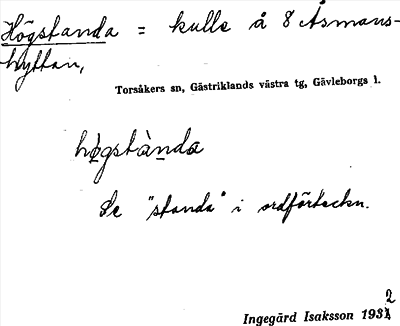 Högstanda = kulle å 8 Åsmans-
hyttan,
Torsåkers sn, Gästriklands västra tg, Gävleborgs l.
högstànda
Se "standa" i ordförteckn.
Ingegärd Isaksson 1932